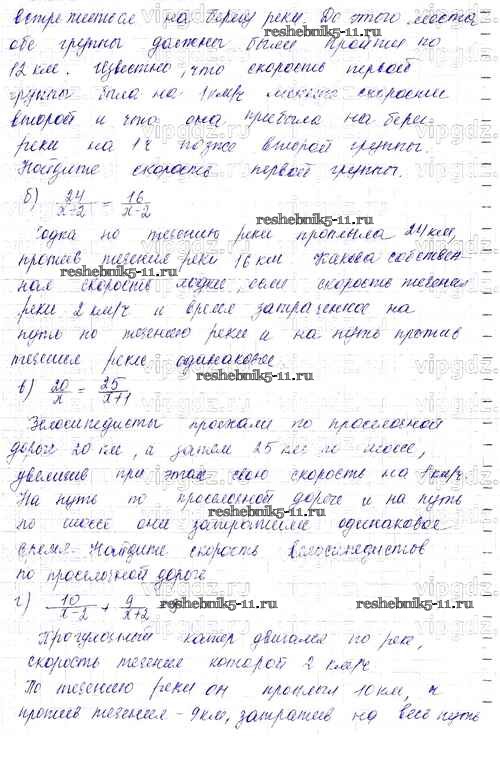 встретиться на берегу реки. До этого места
обе группы должны были пройти по
12 км. Известно, что скорость первой
группы была на 1 км/ч меньше скорости
второй и что она прибыла на берег
реки на 1 ч позже второй группы.
Найдите скорость первой группы.
reshebnik5-11.ru
б) 24/(x+2) = 16/(x-2)
reshebnik5-11.ru
Лодка по течению реки проплыла 24 км,
против течения реки 16 км. Какова собствен-
reshebnik5-11.ru
ная скорость лодки, если скорость течения
реки 2 км/ч и время затраченное на
путь по течению реки и на путь против
течения реки одинаковое.
reshebnik5-11.ru
в) 20/x = 25/(x+1)
Велосипедисты проехали по проселочной
дороге 20 км, а затем 25 км по шоссе,
увеличив при этом свою скорость на 1 км/ч
На путь по проселочной дороге и на путь
reshebnik5-11.ru
по шоссе они затратили одинаковое
время. Найдите скорость велосипедистов
по проселочной дороге
г) 10/(x-2) + 9/(x+2)
reshebnik5-11.ru
Прогулочный катер двигался по реке,
скорость течения которой 2 км/ч
reshebnik5-11.ru
По течению реки он проплыл 10 км, и
против течения - 9 км, затратив на весь путь
vipgdz.ru